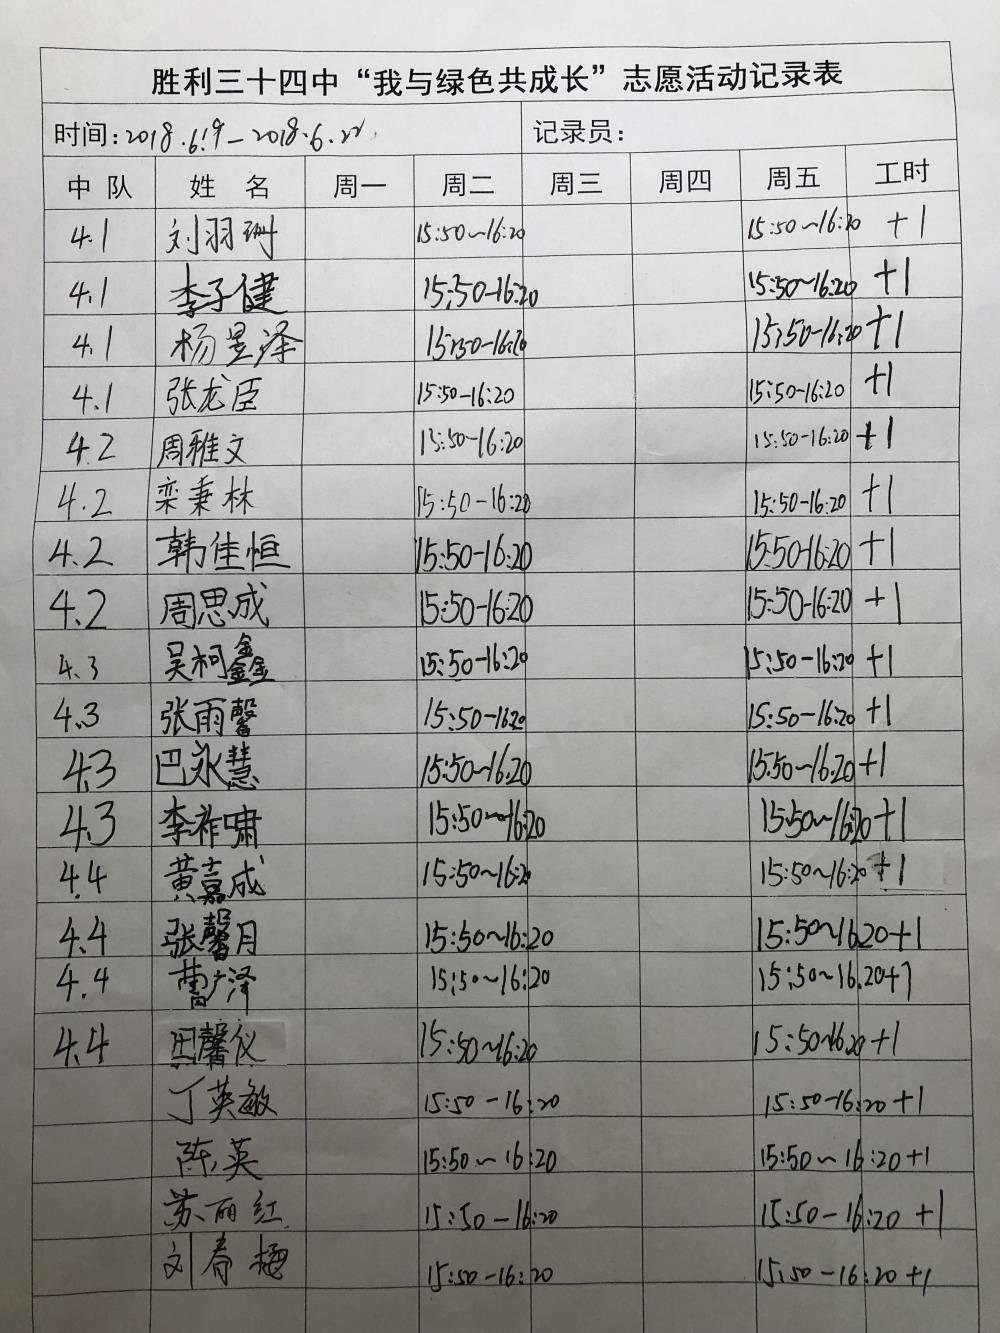 胜利三十四中“我与绿色共成长”志愿活动记录表
时间:2018.6.19-2018.6.22. 记录员:
中队 姓名 周一 周二 周三 周四 周五 工时
4.1 刘羽珊 15:50~16:20 15:50~16:20 +1
4.1 李子健 15:50-16:20 15:50~16:20 +1
4.1 杨昱泽 15:50-16:20 15:50-16:20 +1
4.1 张龙臣 15:50-16:20 15:50-16:20 +1
4.2 周雅文 15:50~16:20 15:50-16:20 +1
4.2 栾秉林 15:50-16:20 15:50-16:20 +1
4.2 韩佳恒 15:50-16:20 15:50-16:20 +1
4.2 周思成 15:50-16:20 15:50-16:20 +1
4.3 吴柯鑫 15:50-16:20 15:50-16:20 +1
4.3 张雨馨 15:50-16:20 15:50-16:20 +1
4.3 巴永慧 15:50~16:20 15:50~16:20 +1
4.3 李祚啸 15:50~16:20 15:50~16:20 +1
4.4 黄嘉成 15:50~16:20 15:50~16:20 +1
4.4 张馨月 15:50~16:20 15:50~16:20 +1
4.4 曹广泽 15:50~16:20 15:50~16:20 +1
4.4 田馨仪 15:50~16:20 15:50~16:20 +1
丁英敏 15:50-16:20 15:50-16:20 +1
陈英 15:50~16:20 15:50~16:20 +1
苏丽红 15:50-16:20 15:50-16:20 +1
刘春梅 15:50-16:20 15:50-16:20 +1